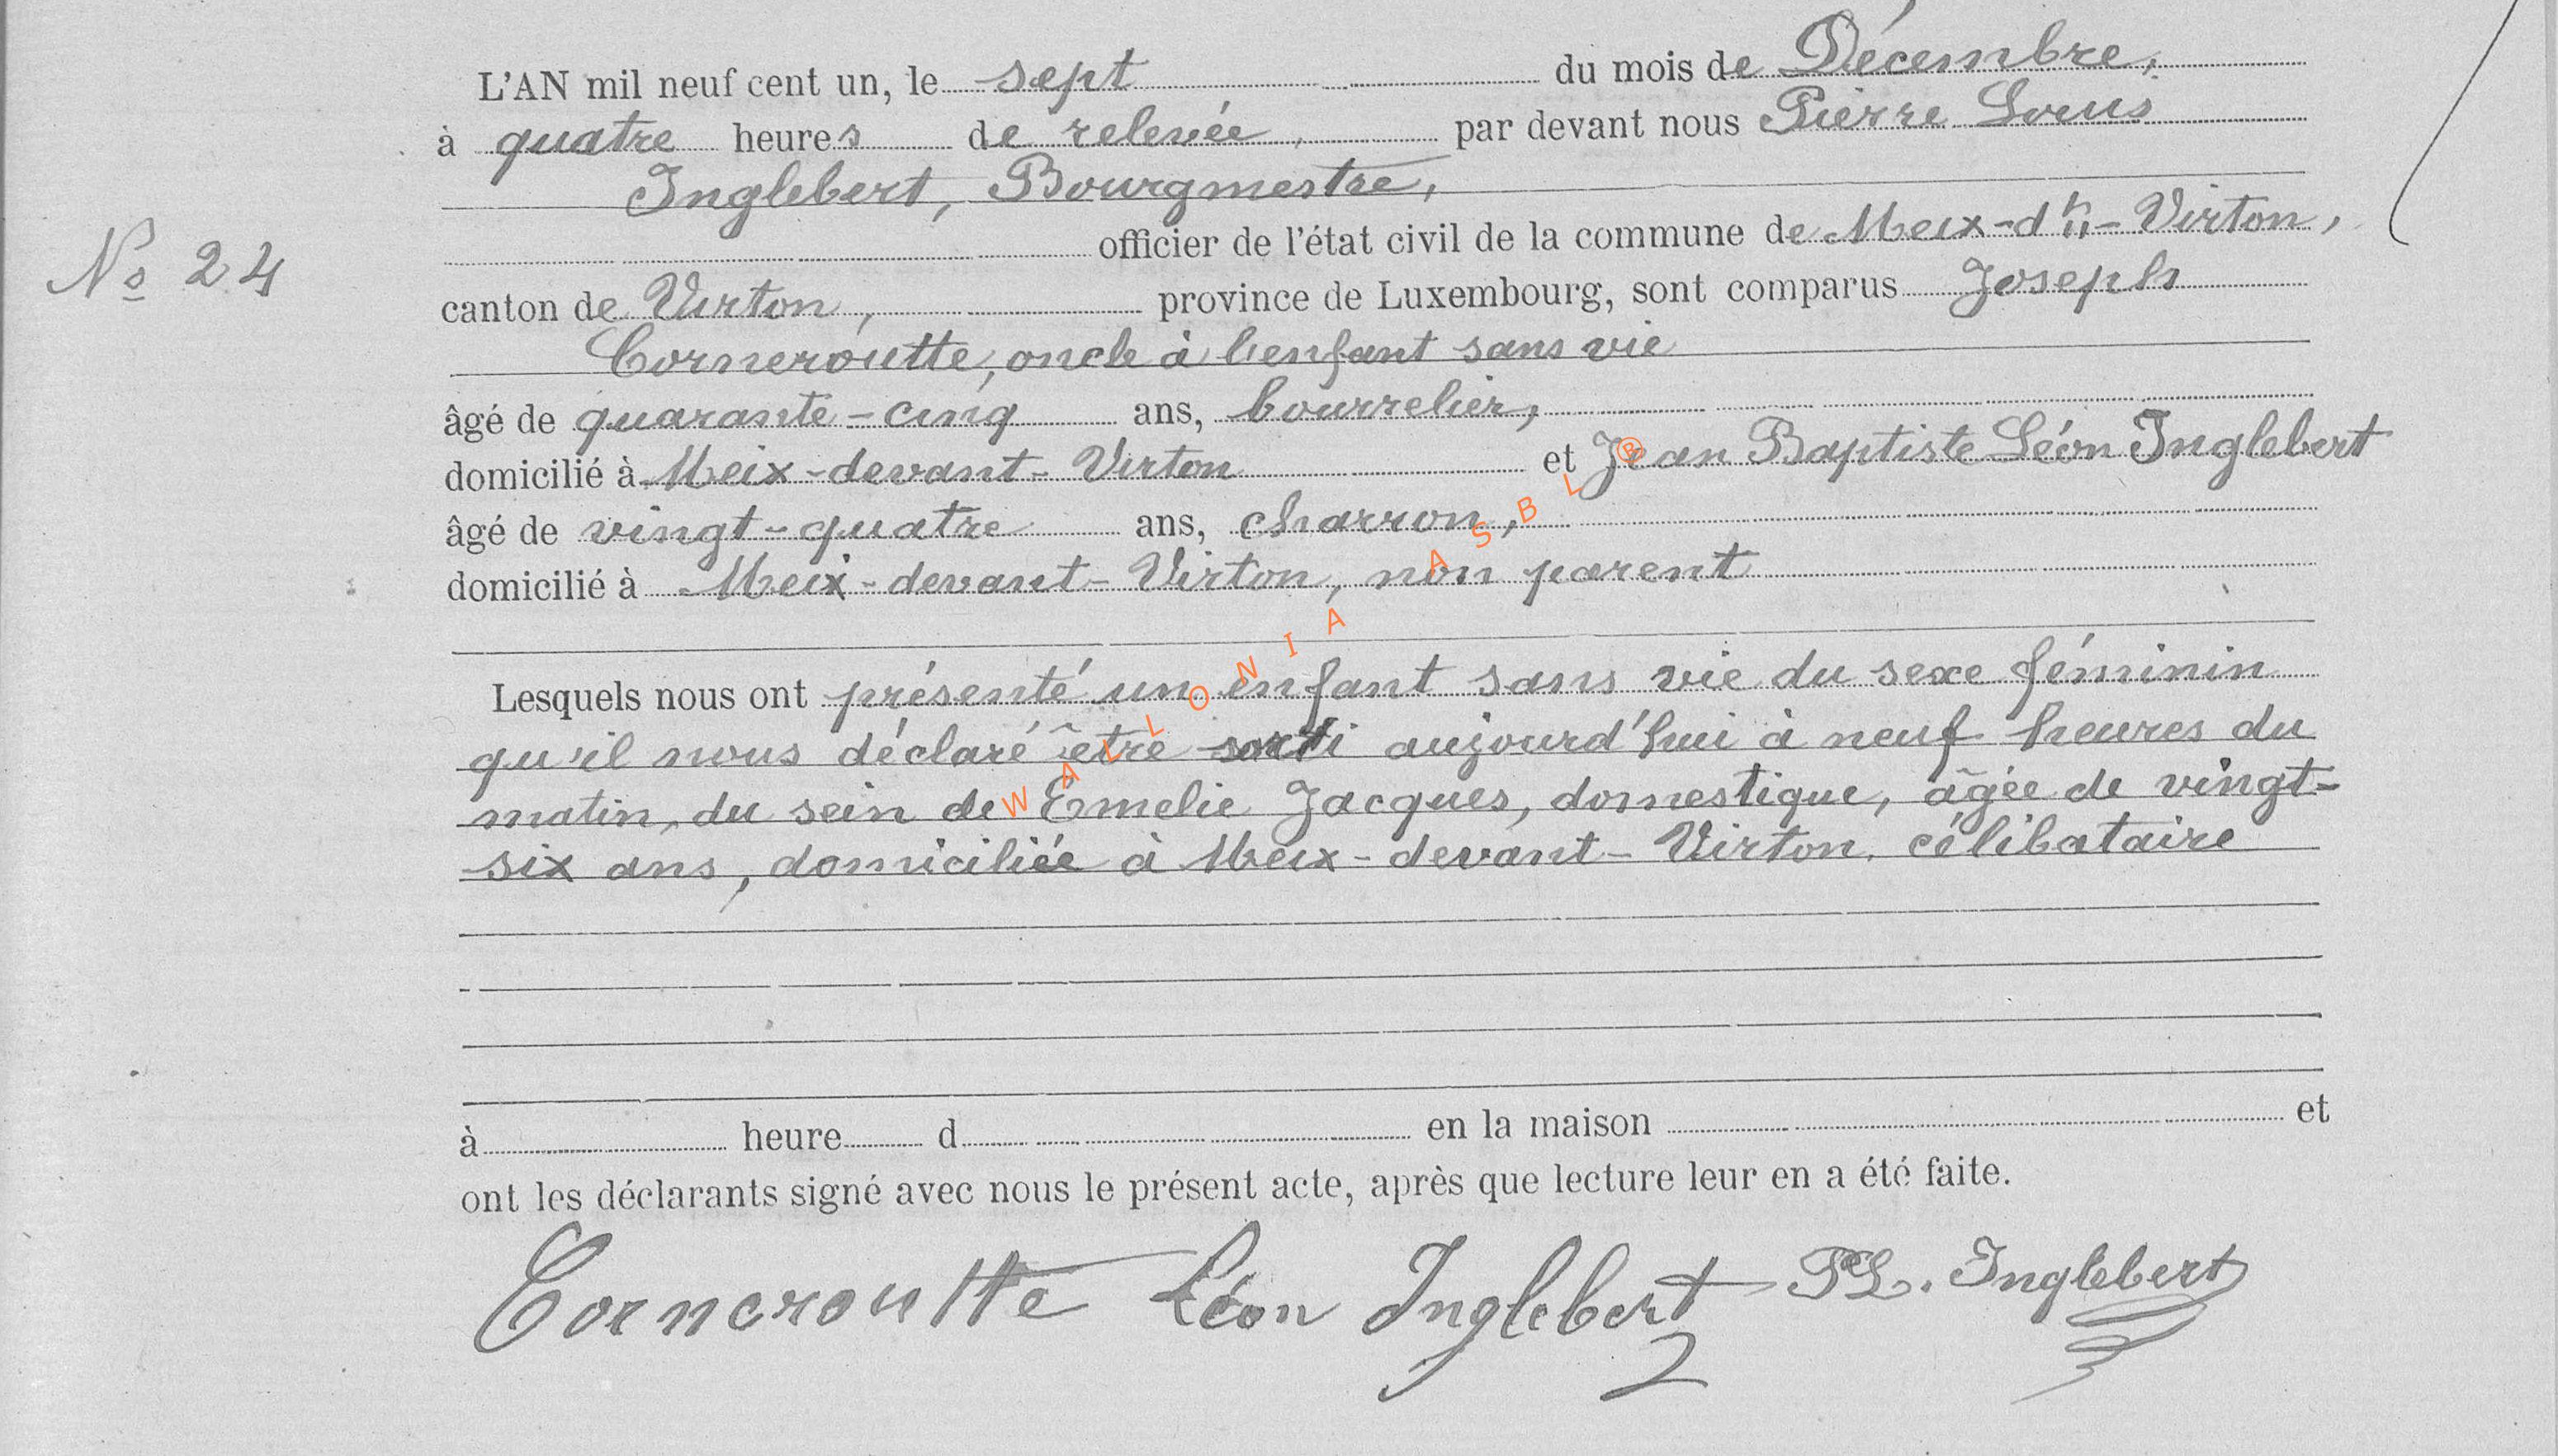 L'AN mil neuf cent un, le sept du mois de Décembre,
à quatre heures de relevée, par devant nous Pierre Louis
Inglebert, Bourgmestre,
officier de l'état civil de la commune de Meix-dt-Virton,
N° 24
canton de Virton, province de Luxembourg, sont comparus Joseph
Corneroutte, oncle à l'enfant sans vie
âgé de quarante-cinq ans, bourrelier,
domicilié à Meix-devant-Virton et Jean Baptiste Léon Inglebert
âgé de vingt-quatre ans, charron,
domicilié à Meix-devant-Virton, non parent
Lesquels nous ont présenté un enfant sans vie du sexe féminin
qu'il nous déclaré être sorti aujourd'hui à neuf heures du
matin, du sein de Emelie Jacques, domestique, âgée de vingt-
six ans, domiciliée à Meix-devant-Virton. célibataire
à heure d en la maison et
ont les déclarants signé avec nous le présent acte, après que lecture leur en a été faite.
Corneroutte Léon Inglebert PL. Inglebert
WALLONIA ASBL ®